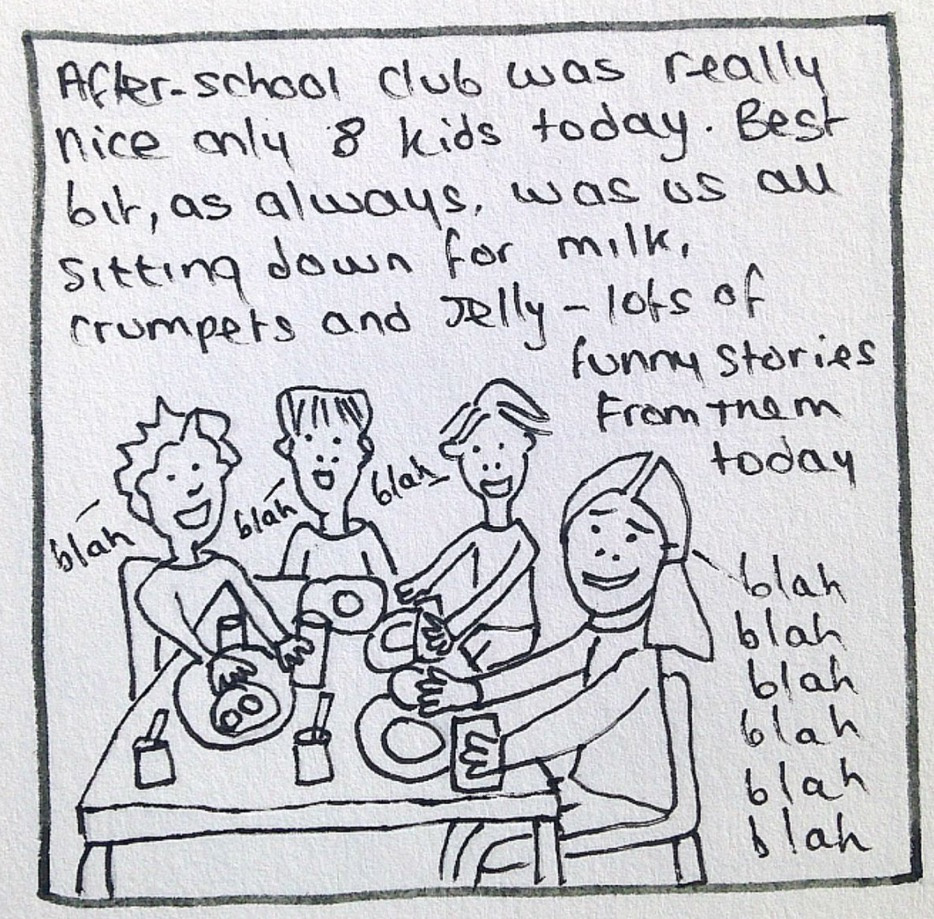 After-school club was really
nice only 8 kids today. Best
bit, as always, was us all
sitting down for milk,
crumpets and Jelly - lots of
funny stories
From them
today
blah
blah
blah
blah
blah
blah
blah
blah
blah